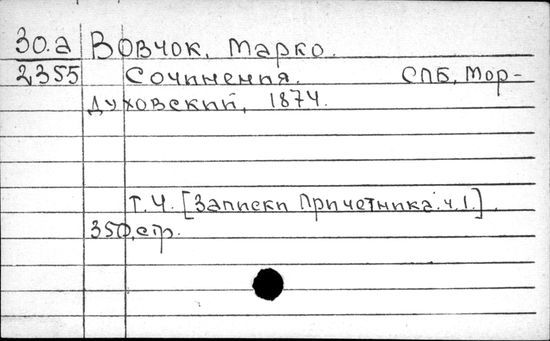 30.а Вовчок, Марко.
2355 Сочинения. СПБ, Мор-
духовский, 1874.
т.4. [Записки Причетника.ч.1.].
350.стр.